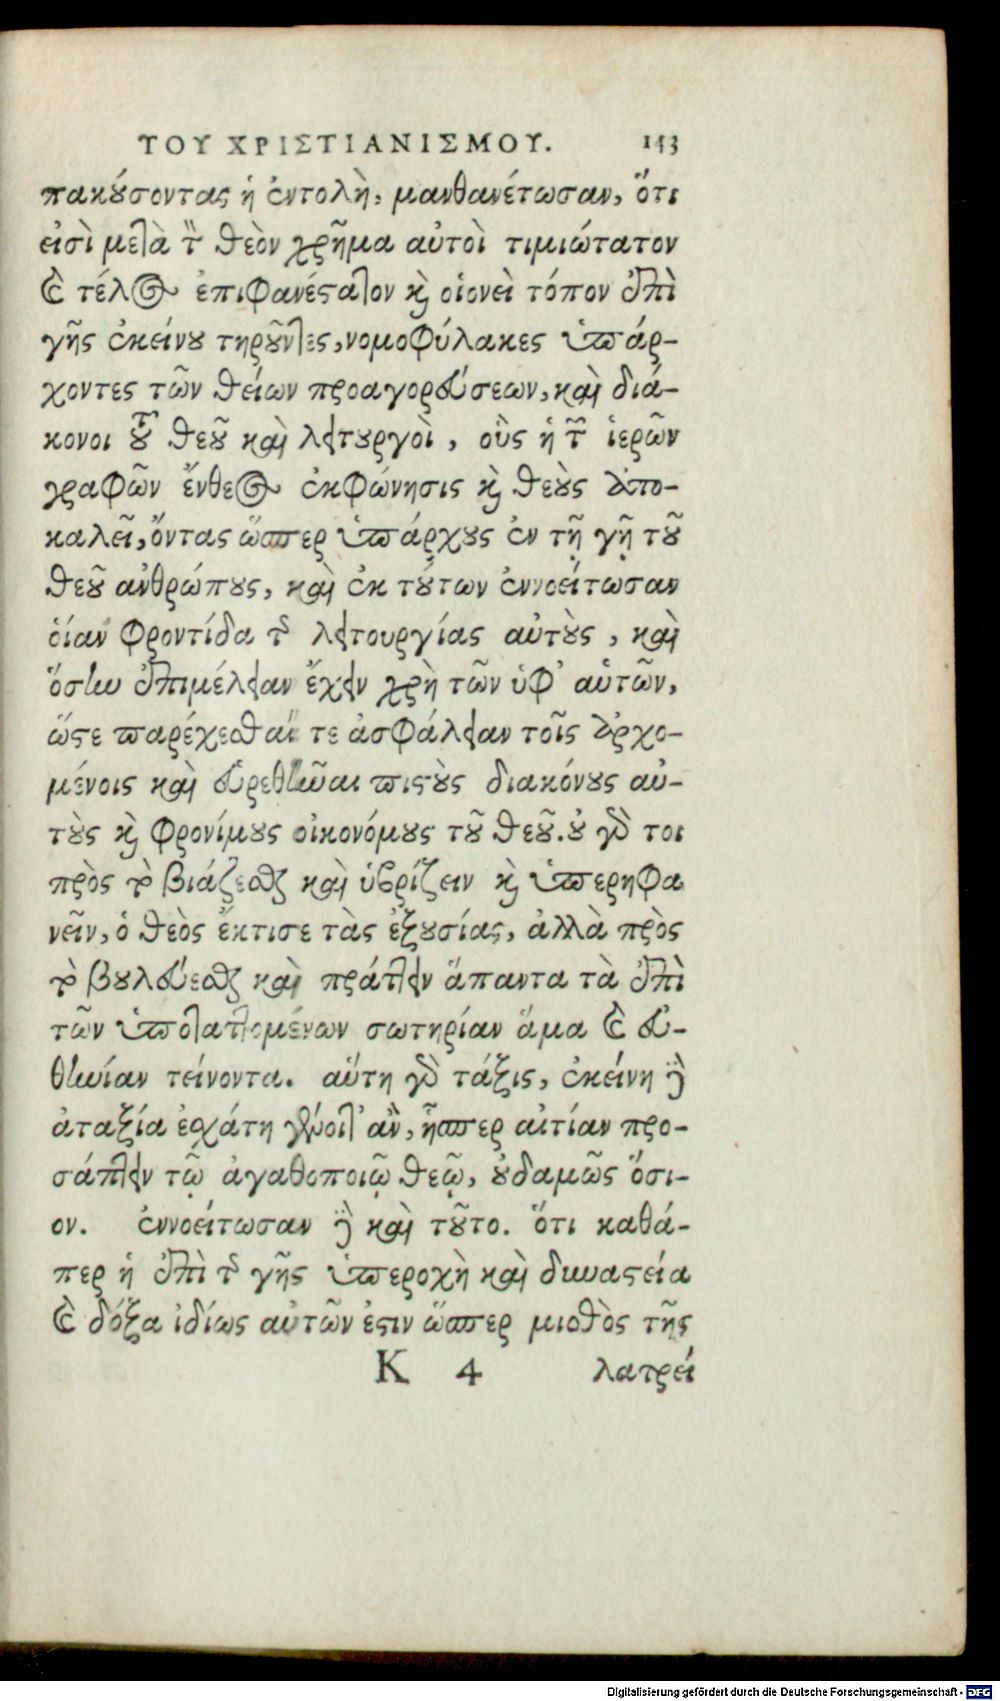 ΤΟΥ ΧΡΙΣΤΙΑΝΙΣΜΟΥ. 143
πακούσοντας ἡ ἐντολὴ, μανθανέτωσαν, ὅτι
εἰσὶ μετὰ τὸν θεὸν χρῆμα αὐτοὶ τιμιώτατον
καὶ τέλος ἐπιφανέστατον καὶ οἱονεὶ τόπον ἐπὶ
γῆς ἐκείνου τηροῦντες, νομοφύλακες ὑπάρ-
χοντες τῶν θείων προαγορεύσεων, καὶ διά-
κονοι τοῦ θεοῦ καὶ λειτουργοὶ, οὓς ἡ τῶν ἱερῶν
γραφῶν ἔνθεος ἐκφώνησις καὶ θεοὺς ἀπο-
καλεῖ, ὄντας ὥσπερ ὑπάρχους ἐν τῇ γῇ τοῦ
θεοῦ ἀνθρώπους, καὶ ἐκ τούτων ἐννοείτωσαν
οἵαν φροντίδα τῆς λειτουργίας αὐτοὺς, καὶ
ὅσην ἐπιμέλειαν ἔχειν χρὴ τῶν ὑφ' αὑτῶν,
ὥστε παρέχεσθαί τε ἀσφάλειαν τοῖς ἀρχο-
μένοις καὶ εὑρεθῆναι πιστοὺς διακόνους αὐ-
τοὺς καὶ φρονίμους οἰκονόμους τοῦ θεοῦ. οὐ γάρ τοι
πρὸς τὸ βιάζεσθαι καὶ ὑβρίζειν καὶ ὑπερηφα
νεῖν, ὁ θεὸς ἔκτισε τὰς ἐξουσίας, ἀλλὰ πρὸς
τὸ βουλεύεσθαι καὶ πράττειν ἅπαντα τὰ ἐπὶ
τῶν ὑποταττομένων σωτηρίαν ἅμα καὶ εὐ-
θηνίαν τείνοντα. αὕτη γὰρ τάξις, ἐκείνη δὲ
ἀταξία ἐσχάτη γένοιτ' ἂν, ἧσπερ αἰτίαν προ-
σάπτειν τῷ ἀγαθοποιῷ θεῷ, οὐδαμῶς ὅσι-
ον. ἐννοείτωσαν δὲ καὶ τοῦτο. ὅτι καθά-
περ ἡ ἐπὶ τῆς γῆς ὑπεροχὴ καὶ δυναστεία
καὶ δόξα ἰδίως αὐτῶν ἐστιν ὥσπερ μισθὸς τῆς
K 4 λατρεί
Digitalisierung gefördert durch die Deutsche Forschungsgemeinschaft - DFG